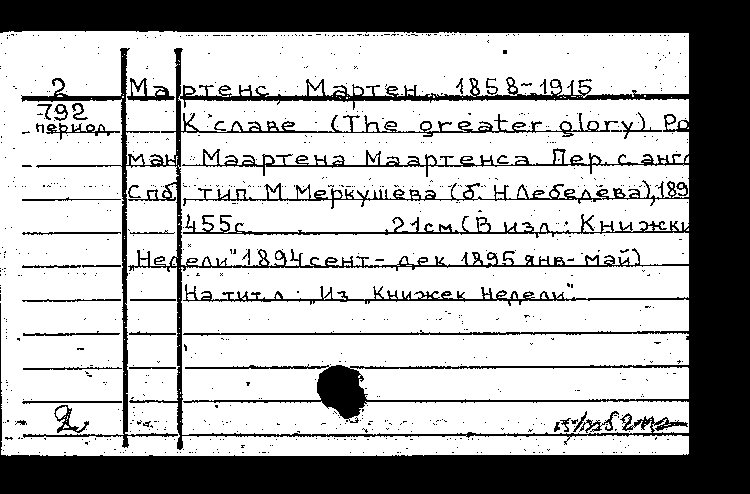 2 Мартенс, Мартен 1858-1915
792
период.
К славе (The greater glory). Ро
ман Маартена Маартенса. Пер. с англ
Спб, тип. М Меркушева (б. Н Лебедева), 189
455с. 21см. (В изд.: Книжки
„Недели" 1894 сент- дек 1895 янв- май)
На тит. л: „Из „Книжек Недели".
2